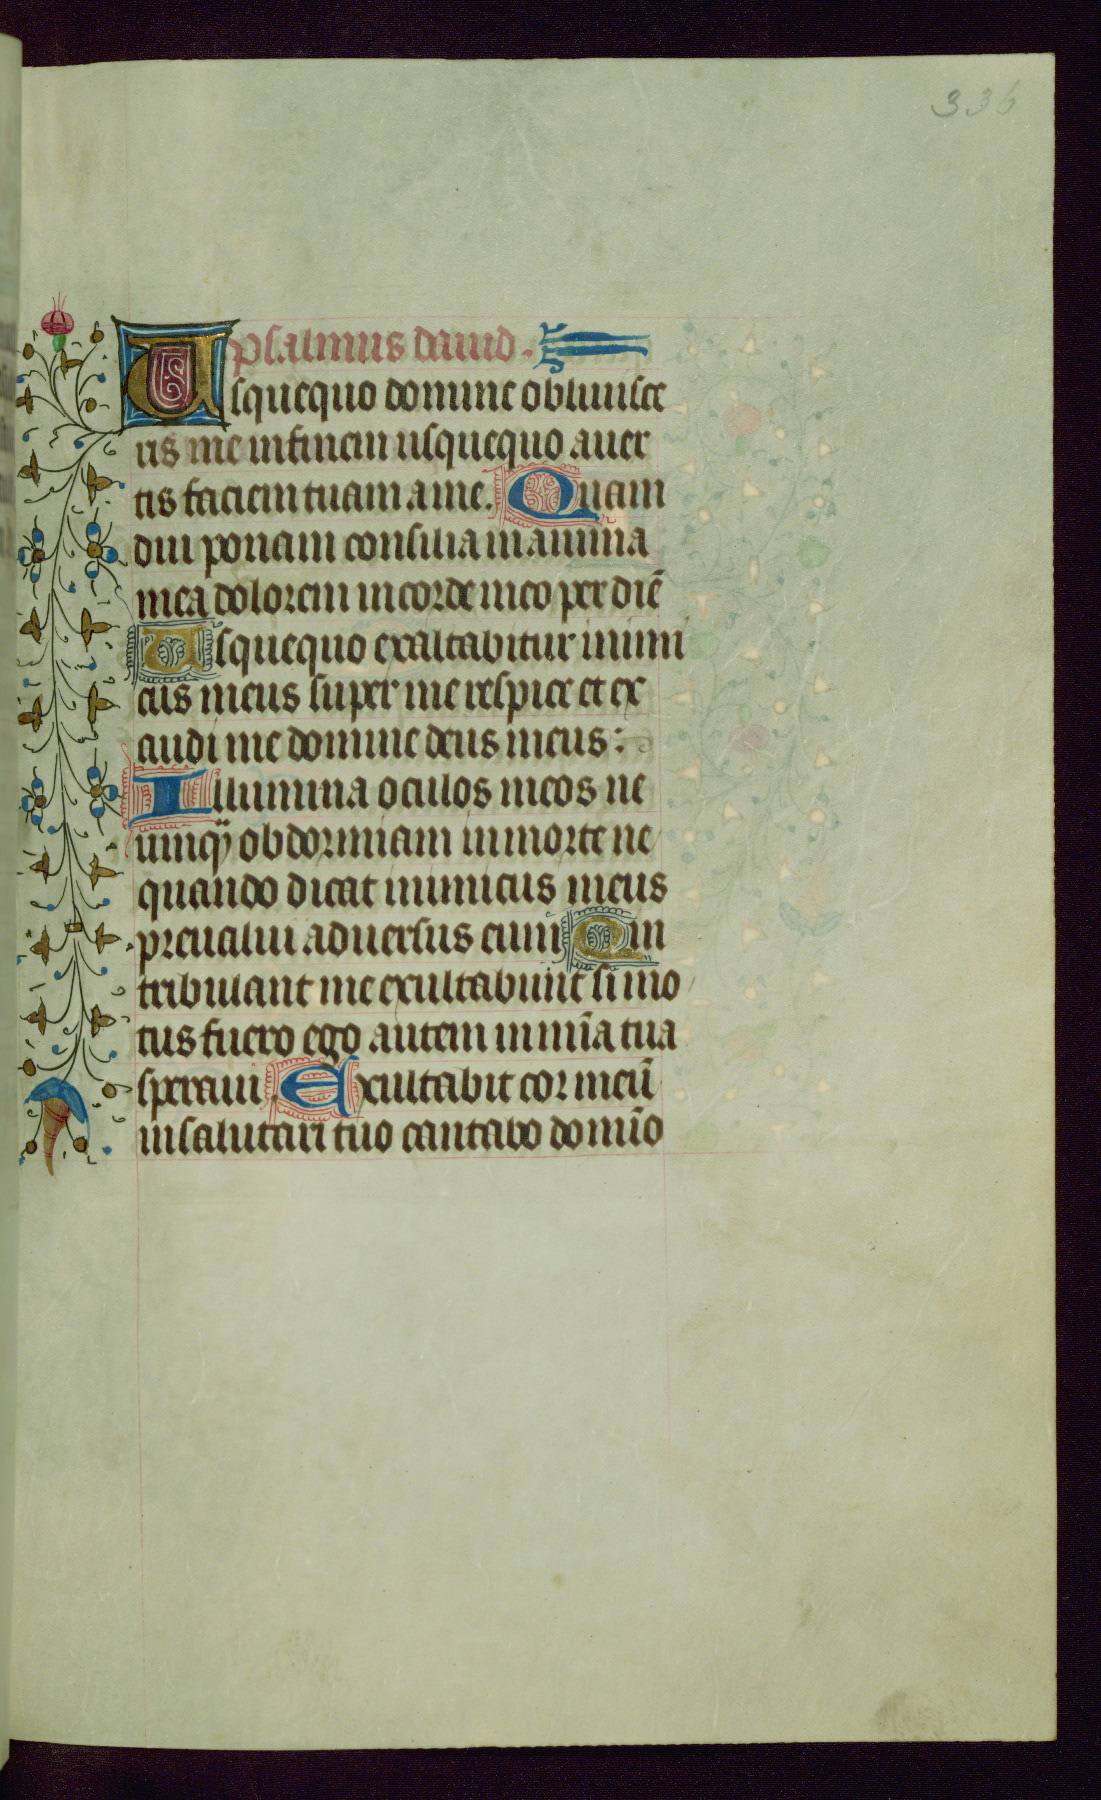 336
psalmus dauid.
Usquequo domine obliuisce
ris me in finem usquequo auer
tis faciem tuam a me. Quam
diu ponam consilia in anima
mea dolorem in corde meo per diē
Usquequo exaltabitur inimi
cus meus super me respice et ex
audi me domine deus meus:
Illumina oculos meos ne
umqȝ obdormiam in morte ne
quando dicat inimicus meus
preualui aduersus eum Qui
tribulant me exultabunt si mo
tus fuero ego autem in mīa tua
speraui. Exultabit cor meū
in salutari tuo cantabo domīo